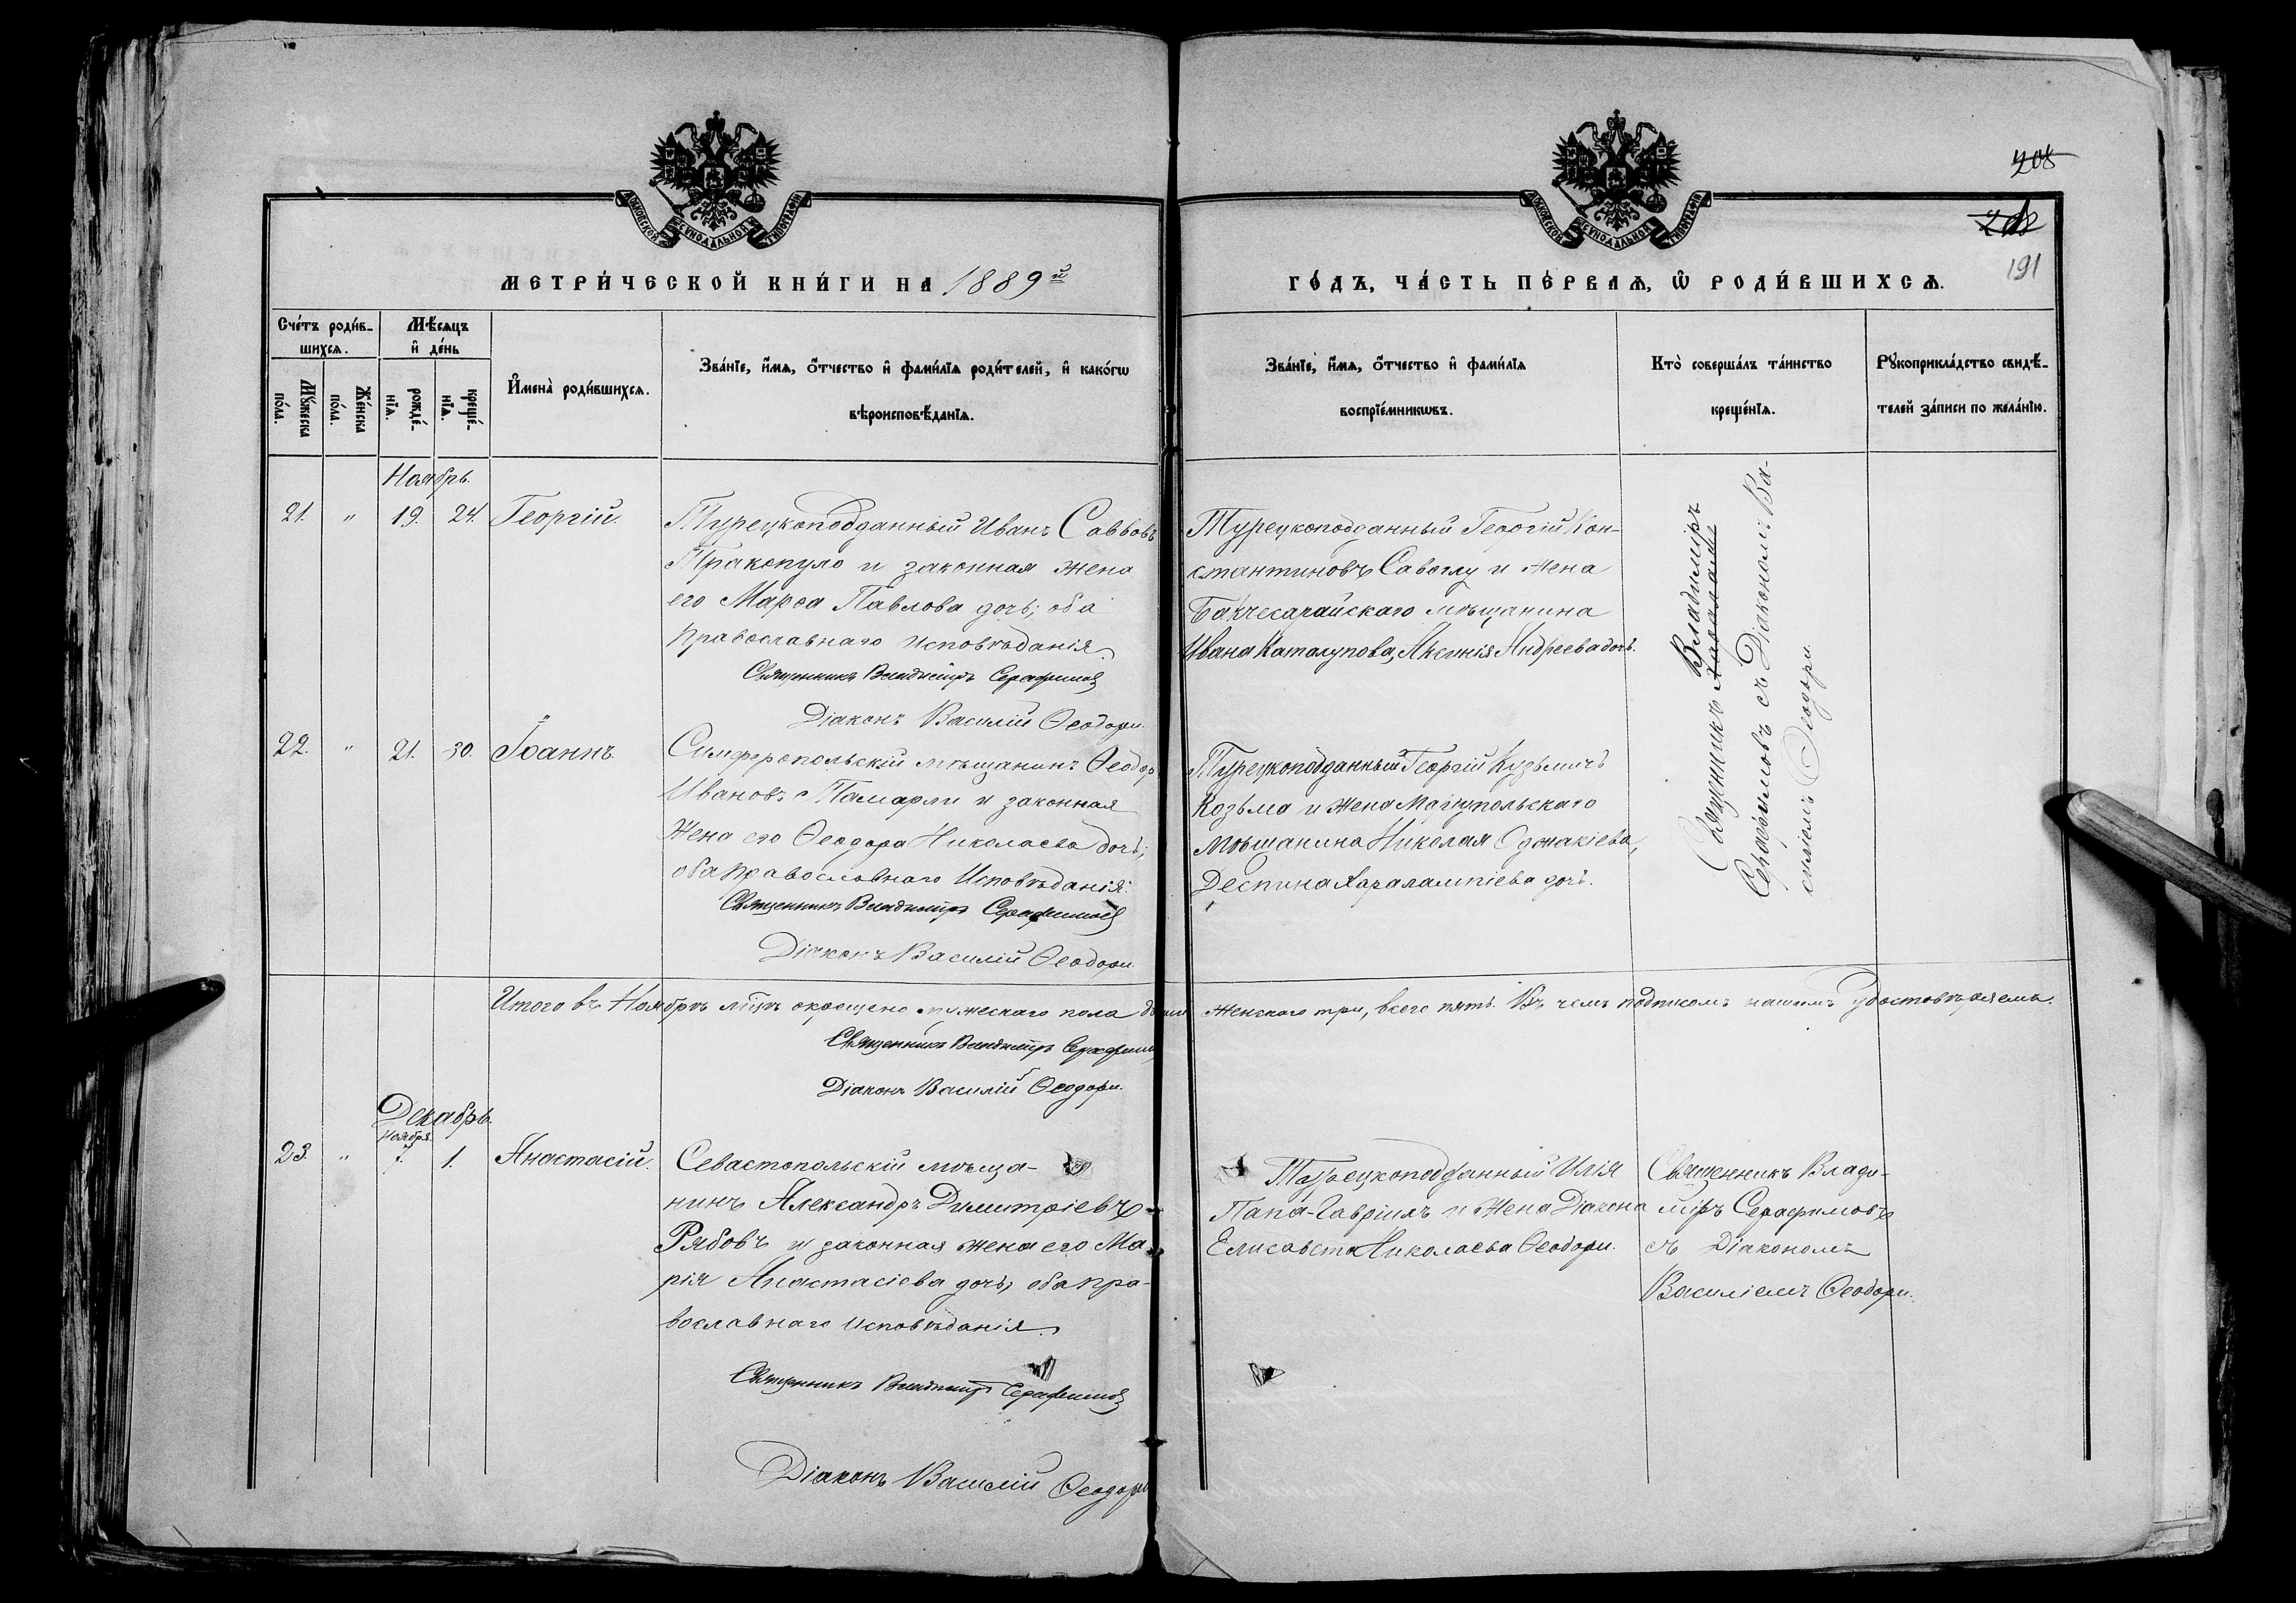 208
202
191
МОСКОВСКОЙ СѴНОДАЛЬНОЙ ТИПОГРАФІИ
МОСКОВСКОЙ СѴНОДАЛЬНОЙ ТИПОГРАФІИ
МЕТРИ́ЧЕСКОЙ КНИ́ГИ НА 1889й
ГО́ДЪ, ЧА́СТЬ ПЕ́РВАѦ, Ѡ҆ РОДИ́ВШИХСѦ.
Сче́тъ роди́в-
шихсѧ.
Мѣ́сѧцъ
и҆ де́нь
Мꙋ́жеска
по́ла.
Же́нска
по́ла.
рожде́-
нїѧ.
креще́-
нїѧ.
И҆мена̀ роди́вшихсѧ.
Зва́нїе, и҆́мѧ, ѻ҆́тчество и҆ фами́лїѧ роди́телей, и҆ како́гѡ
вѣроисповѣ́данїѧ.
Зва́нїе, и҆́мѧ, ѻ҆́тчество и҆ фами́лїѧ
воспрїе́мникѡвъ.
Кто̀ соверша́лъ та́инство
креще́нїѧ.
Рꙋкоприкла́дство свидѣ́-
телей за́писи по жела́нїю.
Ноябрь.
21. " 19. 24. Георгій.
Турецкоподданный Иванъ Саввовъ
Пракопуло и законная жена
его Марѳа Павлова дочь; оба
православнаго исповѣданія.
Священникъ Владиміръ Серафимовъ
Діаконъ Василій Ѳеодори.
Турецкоподданный Георгій Кон-
стантиновъ Савоглу и жена
Бакчесарайскаго мѣщанина
Ивана Каталупова, Аксинія Андреева дочь.
Священникъ Владиміръ
Серафимовъ съ Діакономъ Ва-
силіемъ Ѳеодори
22. " 21. 30. Іоаннъ.
Симферопольскій мѣщанинъ Ѳеодор
Ивановъ Памарли и законная
Жена его Ѳеодора Николаева дочь;
оба православнаго Исповѣданія.
Священникъ Владиміръ Серафимовъ
Діаконъ Василій Ѳеодори
Турецкоподданный Георгій Кузьмичъ
Козьма и жена Маріупольскаго
мѣщанина Николая Оджакіева,
Деспина Харалампіева дочь.
Итого въ Ноябрѣ мцѣ окрещено мужескаго пола два и женскаго три, всего пять. Въ чемъ подписомъ нашимъ удостовѣряемъ.
Священникъ Владиміръ Серафимовъ
Діаконъ Василій Ѳеодори.
Декабрь.
Ноября.
23. " 7. 1. Анастасій.
Севастопольскій мѣща-
нинъ Александръ Димитріевъ
Рябовъ и законная жена его Ма-
рія Анастасіева дочь, оба пра-
вославнаго исповѣданія.
Священникъ Владиміръ Серафимовъ
Діаконъ Василій Ѳеодори
Турецкоподданный Илія
Папа-Гавріилъ и Жена Діакона
Елисавета Николаева Ѳеодори.
Священникъ Влади-
міръ Серафимовъ
съ Діакономъ
Василіемъ Ѳеодори.